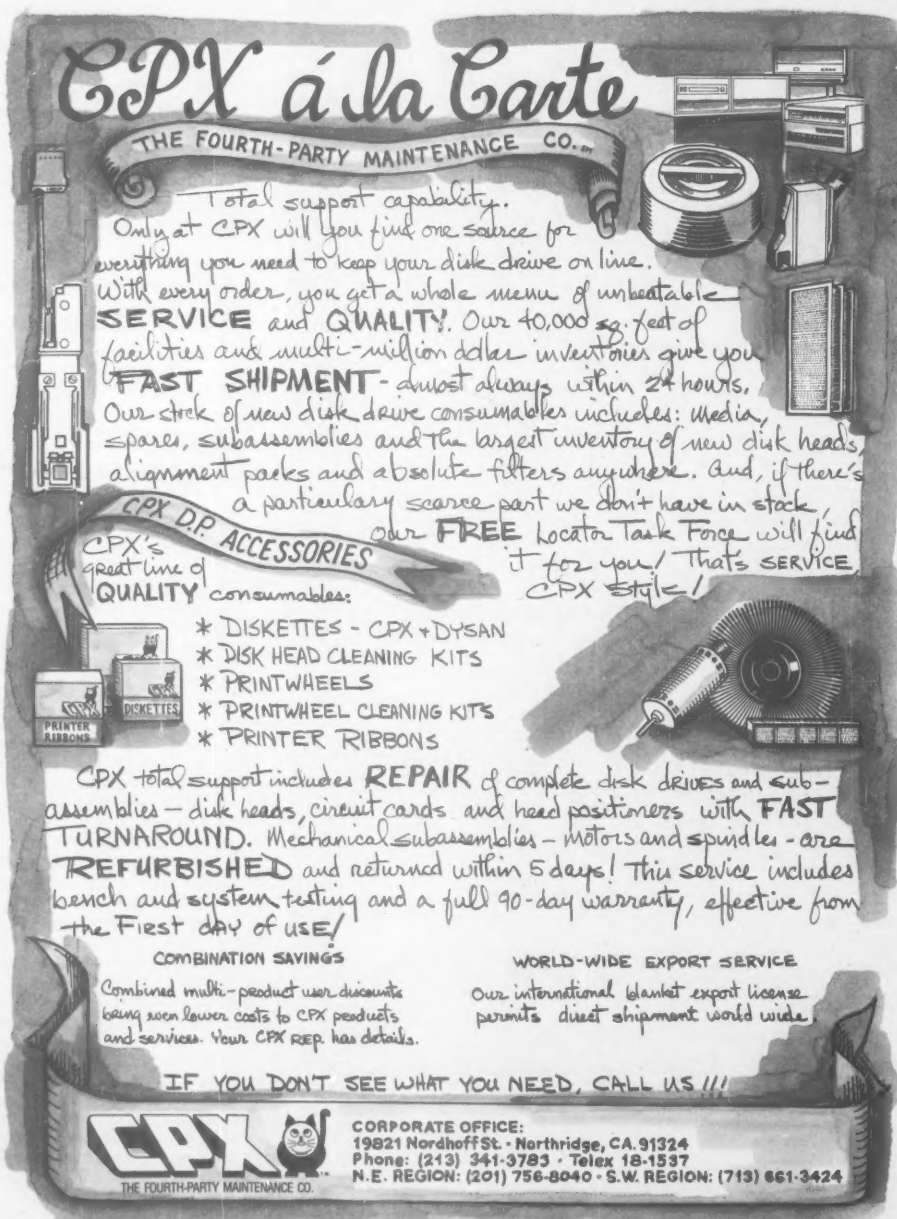 CPX á la Carte
THE FOURTH-PARTY MAINTENANCE CO. SM
Total support capability.
Only at CPX will you find one source for
everything you need to keep your disk drive on line.
With every order, you get a whole menu of unbeatable
SERVICE and QUALITY. Our 40,000 sq. feet of
facilities and multi-million dollar inventories give you
FAST SHIPMENT - almost always within 24 hours.
Our stock of new disk drive consumables includes: Media,
spares, subassemblies and the largest inventory of new disk heads,
alignment packs and absolute filters anywhere. And, if there's
a particulary scarce part we don't have in stock,
our FREE Locator Task Force will find
it for you! That's SERVICE
CPX Style!
CPX D.P. ACCESSORIES
CPX's
great line of
QUALITY consumables:
* DISKETTES - CPX + DYSAN
* DISK HEAD CLEANING KITS
* PRINTWHEELS
* PRINTWHEEL CLEANING KITS
* PRINTER RIBBONS
PRINTER
RIBBONS
DISKETTES
CPX total support includes REPAIR of complete disk drives and sub-
assemblies — disk heads, circuit cards and head positioners with FAST
TURNAROUND. Mechanical subassemblies - motors and spindles - are
REFURBISHED and returned within 5 days! This service includes
bench and system testing and a full 90-day warranty, effective from
the First day of use!
COMBINATION SAVINGS
Combined multi-product user discounts
being even lower costs to CPX products
and services. Your CPX REP. has details.
WORLD-WIDE EXPORT SERVICE
Our international blanket export license
permits direct shipment world wide.
IF YOU DON'T SEE WHAT YOU NEED, CALL US !!!
CPX
THE FOURTH-PARTY MAINTENANCE CO.
CORPORATE OFFICE:
19821 Nordhoff St. • Northridge, CA. 91324
Phone: (213) 341-3783 • Telex 18-1537
N.E. REGION: (201) 756-8040 • S.W. REGION: (713) 661-3424